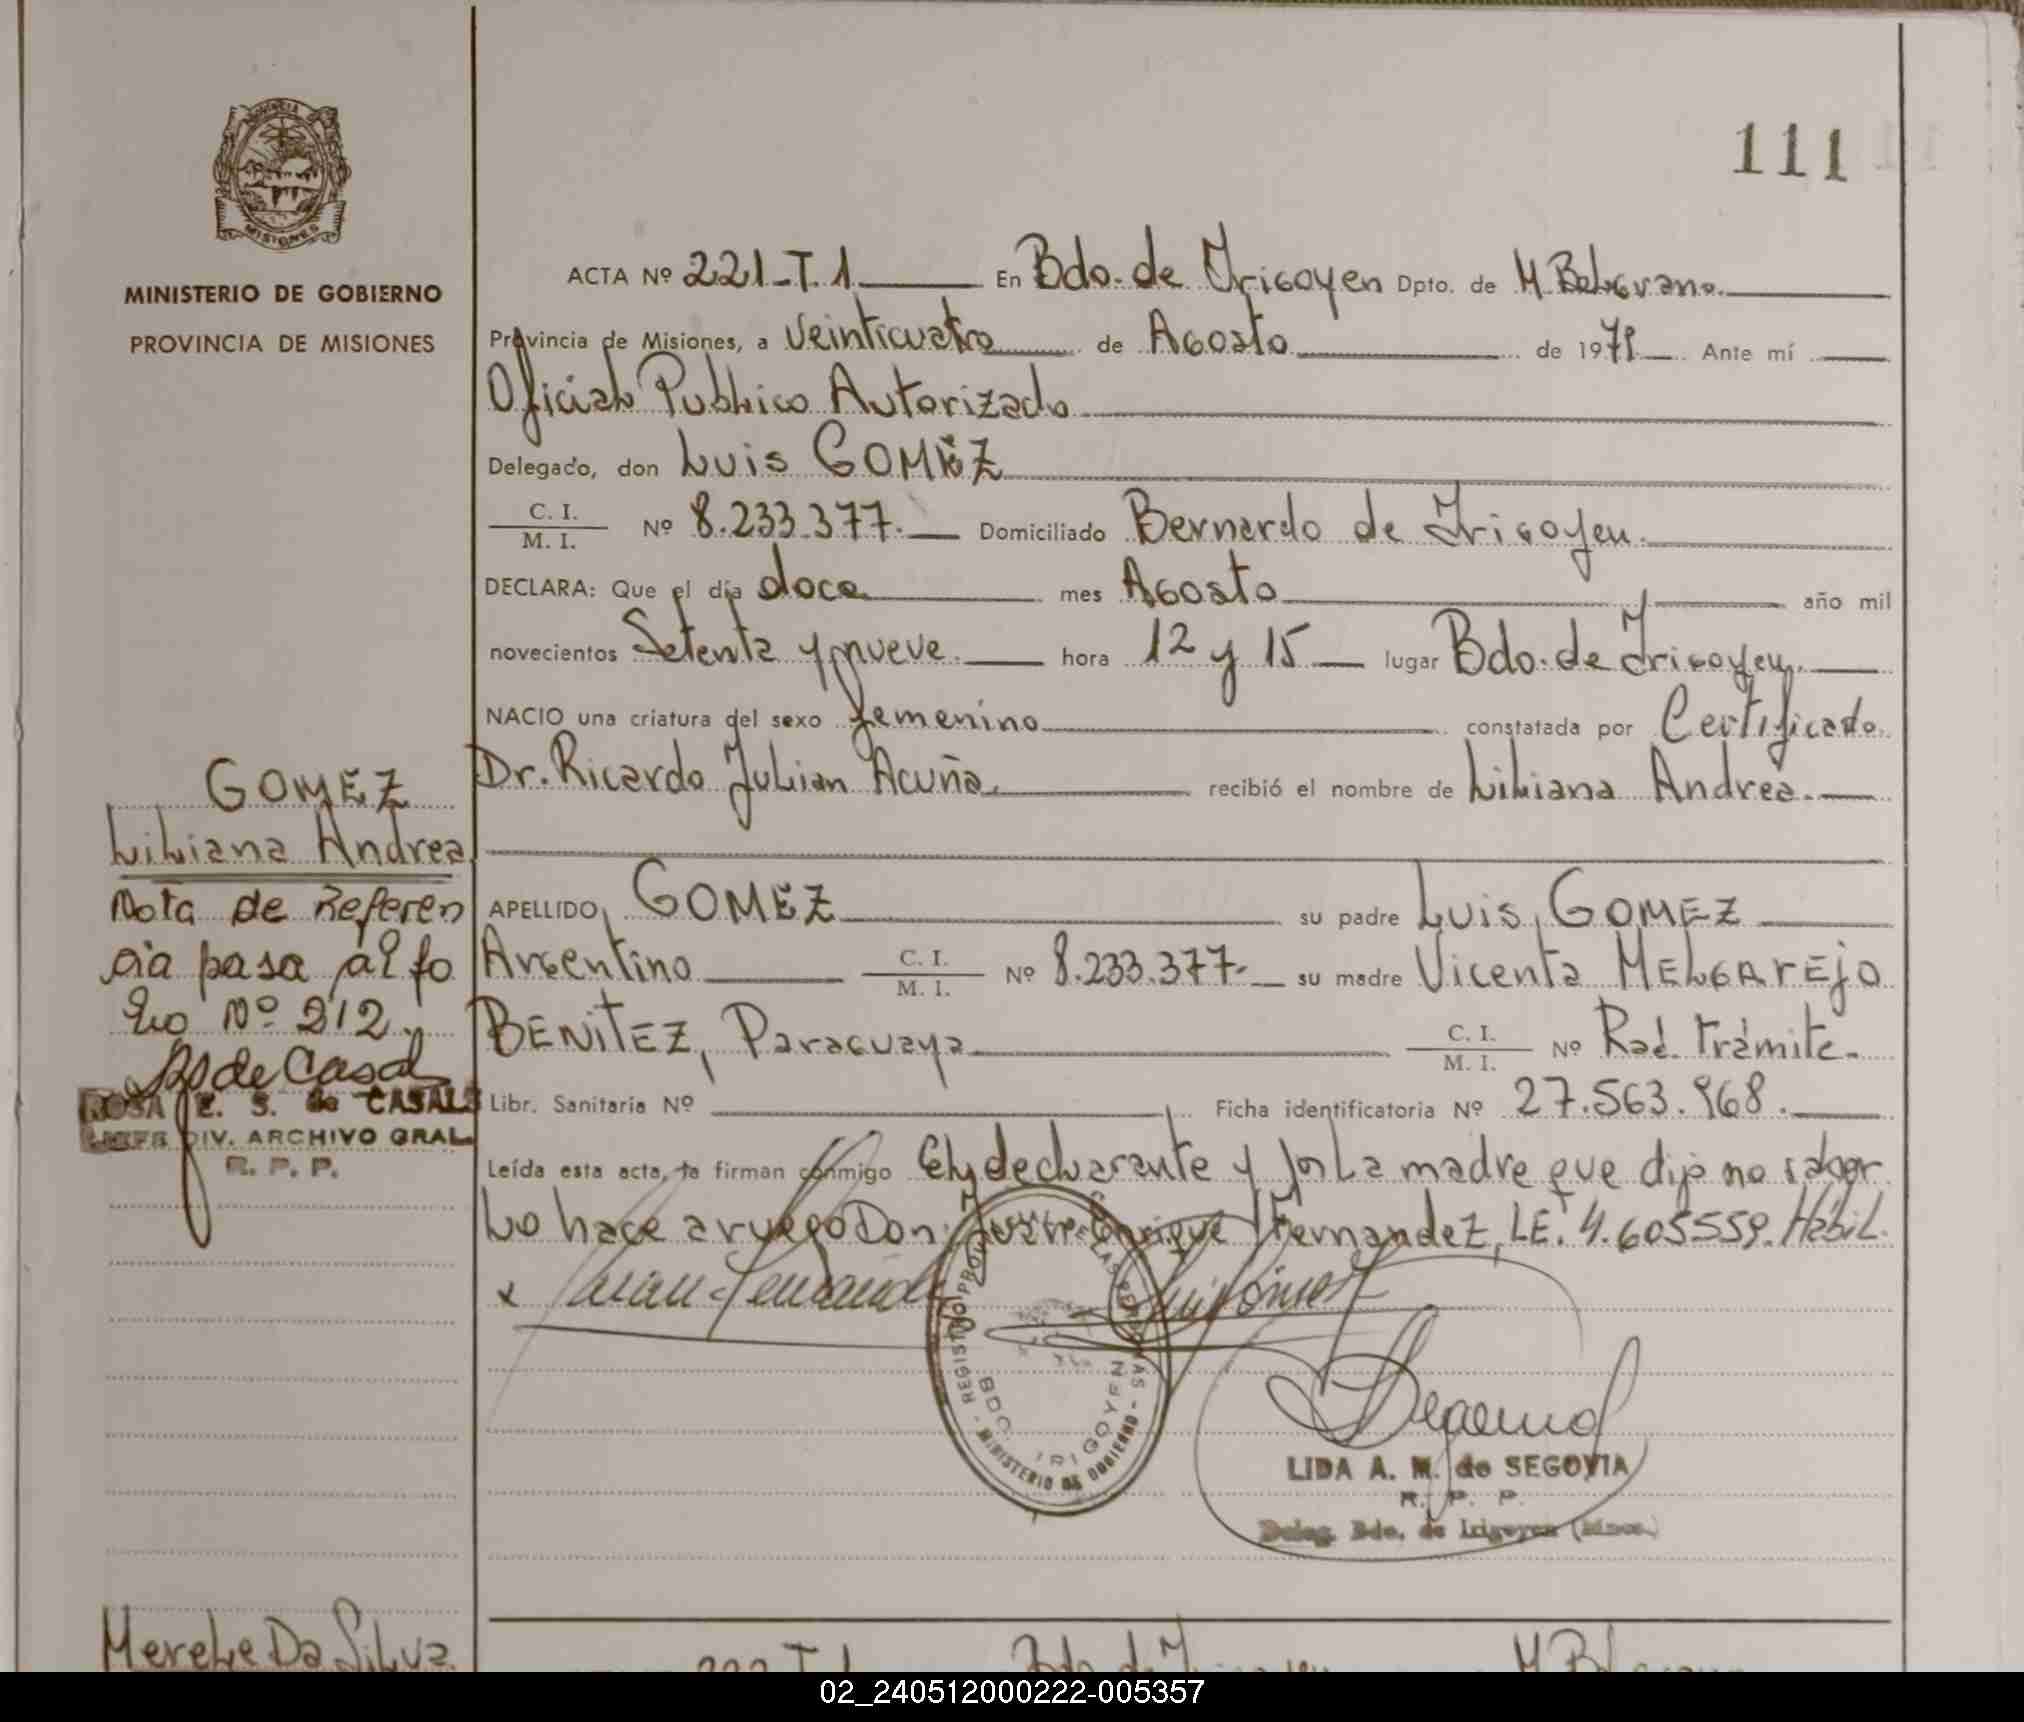 PROVINCIA
MISIONES
MINISTERIO DE GOBIERNO
PROVINCIA DE MISIONES
111
ACTA Nº 221-T.1 En Bdo. de Irigoyen Dpto. de M. Belgrano.
Provincia de Misiones, a Veinticuatro de Agosto de 1979 Ante mí
Oficial Publico Autorizado
Delegado, don Luis GOMEZ
C. I.
M. I. Nº 8.233.377. Domiciliado Bernardo de Irigoyen.
DECLARA: Que el día doce mes Agosto año mil
novecientos Setenta y nueve. hora 12 y 15 lugar Bdo. de Irigoyen.
NACIO una criatura del sexo femenino constatada por Certificado
Dr. Ricardo Julian Acuña. recibió el nombre de Liliana Andrea.
APELLIDO GOMEZ su padre Luis GOMEZ
Argentino C. I.
M. I. Nº 8.233.377- su madre Vicenta MELGAREJO
BENITEZ, Paraguaya C. I.
M. I. Nº Rad. Trámite.
Libr. Sanitaria Nº Ficha identificatoria Nº 27.563.968.
Leída esta acta, la firman conmigo El declarante y por La madre que dijo no saber
Lo hace a ruego Don: Enrique Fernandez, LE. 4.605559. Hábil.
x
REGISTRO PROV. DE LAS PERSONAS
BDO. IRIGOYEN
- MINISTERIO DE GOBIERNO -
LIDA A. M. de SEGOVIA
R. P. P.
Deleg. Bdo. de Irigoyen (Mnes.)
GOMEZ
Liliana Andrea
Nota de Referen
cia pasa al fo
lio Nº 212.
ROSA E. S. de CASALS
JEFE DIV. ARCHIVO GRAL.
R. P. P.
Merele Da Silva
222 T. 1 Bdo. de Irigoyen M. Belgrano
02_240512000222-005357